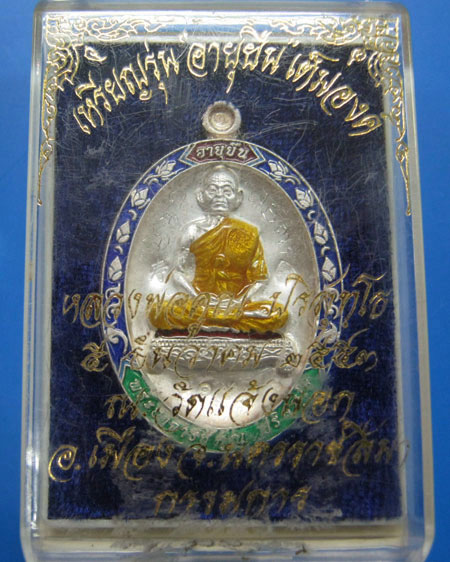 เหรียญรุ่น อายุยืน เต็มองค์
อายุยืน
หลวงพ่อคูณ ปริสุทฺโธ
๕ ธันวาคม ๒๕๕๓
วัดแจ้งนอก
อ.เมือง จ.นครราชสีมา
กรรมการ